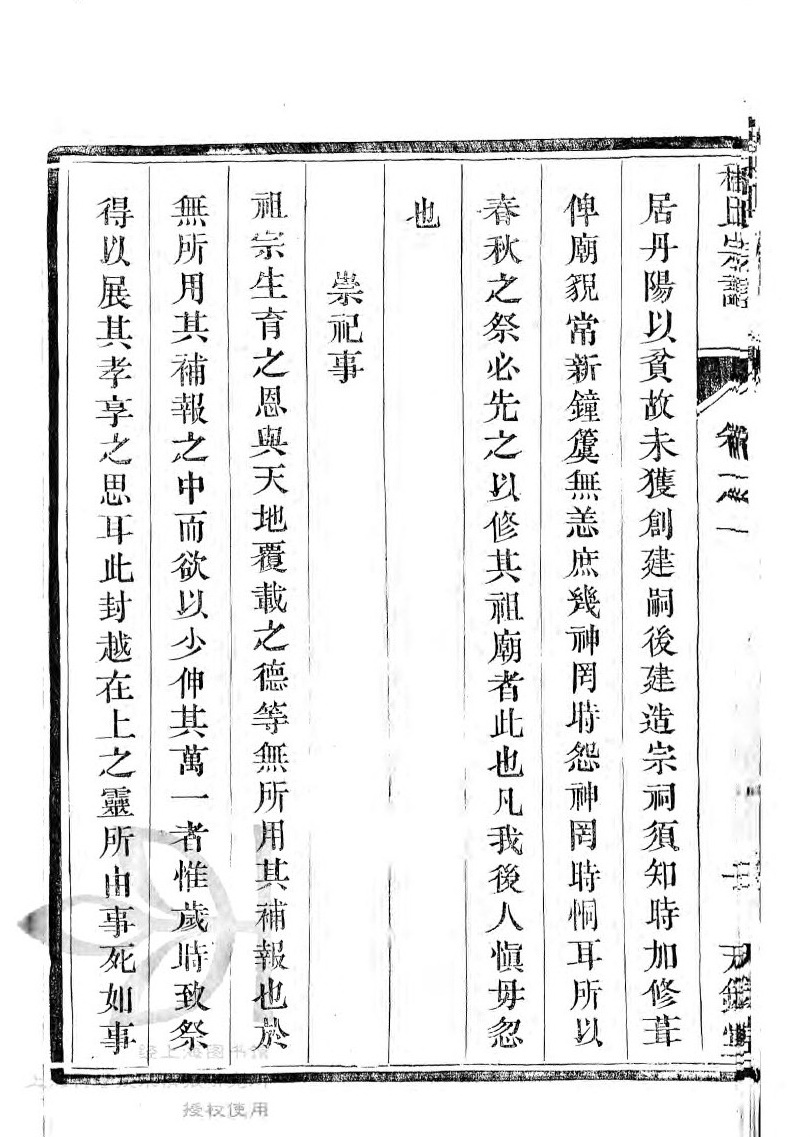 居丹陽以貧故未獲創建嗣後建造宗祠須知時加修葺
俾廟貌常新鐘簴無恙庶幾神罔時怨神罔時恫耳所以
春秋之祭必先之以修其祖廟者此也凡我後人愼毋忽
也
崇祀事
祖宗生育之恩與天地覆載之德等無所用其補報也於
無所用其補報之中而欲以少伸其萬一者惟歲時致祭
得以展其孝享之思耳此封越在上之靈所由事死如事
氏宗譜
卷
上海图书馆
授权使用